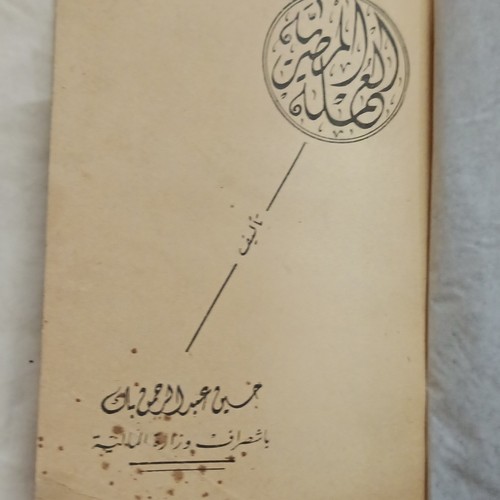 العملة المصرية
تأليف
حسين عبد الرحمن بك
باشصراف وزارة المالية